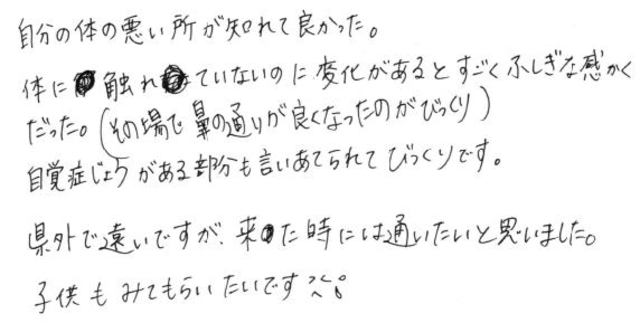 自分の体の悪い所が知れて良かった。
体に触れていないのに変化があるとすごくふしぎな感かく
だった。(その場で鼻の通りが良くなったのがびっくり)
自覚症じょうがある部分も言いあてられてびっくりです。
県外で遠いですが、来た時には通いたいと思いました。
子供もみてもらいたいです